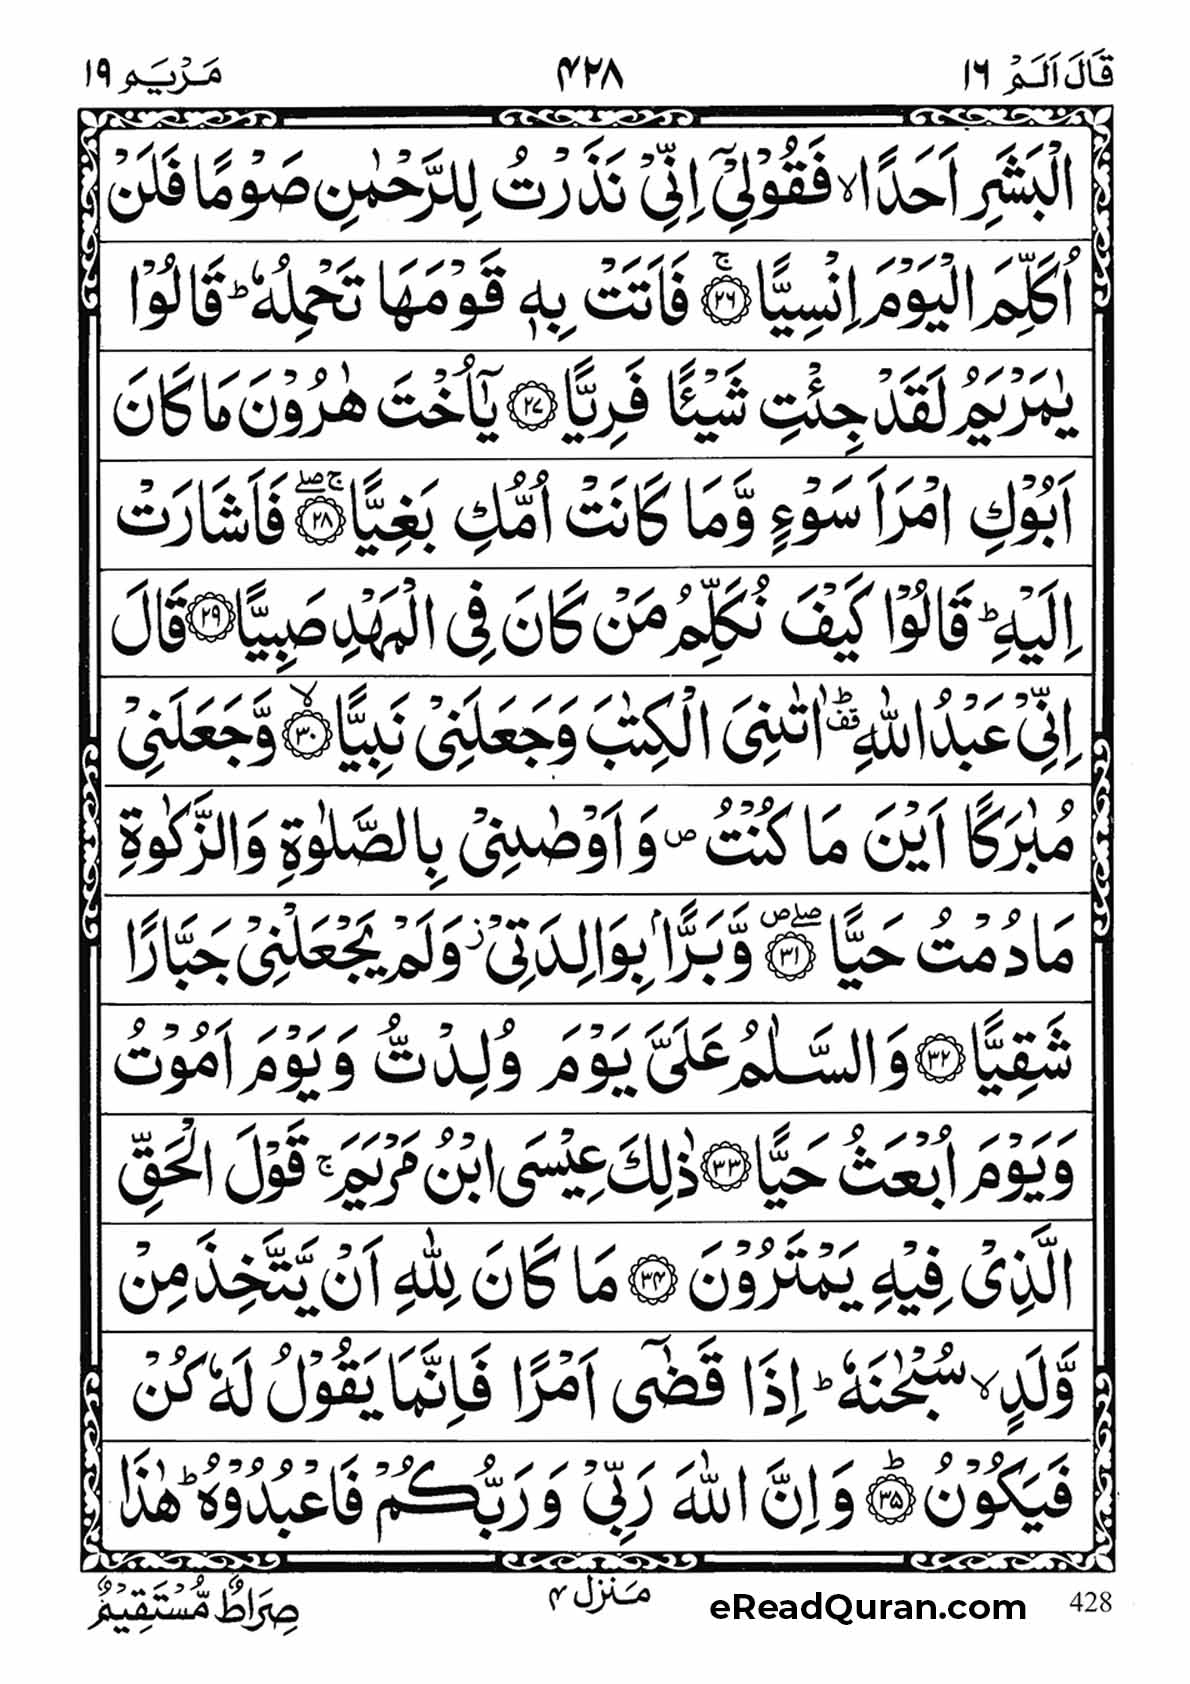 قَالَ اَلَمْ ١٦ ۴۲۸ مَرْيَم ١٩
الْبَشَرِ اَحَدًا ۙ فَقُوْلِيْٓ اِنِّيْ نَذَرْتُ لِلرَّحْمٰنِ صَوْمًا فَلَنْ
اُكَلِّمَ الْيَوْمَ اِنْسِيًّا ۚ﴿۲۶﴾ فَاَتَتْ بِهٖ قَوْمَهَا تَحْمِلُهٗ ؕ قَالُوْا
يٰمَرْيَمُ لَقَدْ جِئْتِ شَيْـًٔا فَرِيًّا ﴿۲۷﴾ يٰٓاُخْتَ هٰرُوْنَ مَا كَانَ
اَبُوْكِ امْرَاَ سَوْءٍ وَّمَا كَانَتْ اُمُّكِ بَغِيًّا ۚۖ﴿۲۸﴾ فَاَشَارَتْ
اِلَيْهِ ؕ قَالُوْا كَيْفَ نُكَلِّمُ مَنْ كَانَ فِي الْمَهْدِ صَبِيًّا ﴿۲۹﴾ قَالَ
اِنِّيْ عَبْدُ اللّٰهِ ؕ قف اٰتٰىنِيَ الْكِتٰبَ وَجَعَلَنِيْ نَبِيًّا ۙ﴿۳۰﴾ وَّجَعَلَنِيْ
مُبٰرَكًا اَيْنَ مَا كُنْتُ ص وَاَوْصٰنِيْ بِالصَّلٰوةِ وَالزَّكٰوةِ
مَا دُمْتُ حَيًّا ۖ ص﴿۳۱﴾ وَّبَرًّۢا بِوَالِدَتِيْ ز وَلَمْ يَجْعَلْنِيْ جَبَّارًا
شَقِيًّا ﴿۳۲﴾ وَالسَّلٰمُ عَلَيَّ يَوْمَ وُلِدْتُّ وَيَوْمَ اَمُوْتُ
وَيَوْمَ اُبْعَثُ حَيًّا ﴿۳۳﴾ ذٰلِكَ عِيْسَى ابْنُ مَرْيَمَ ۚ قَوْلَ الْحَقِّ
الَّذِيْ فِيْهِ يَمْتَرُوْنَ ﴿۳۴﴾ مَا كَانَ لِلّٰهِ اَنْ يَّتَّخِذَ مِنْ
وَّلَدٍ ۙ سُبْحٰنَهٗ ؕ اِذَا قَضٰٓى اَمْرًا فَاِنَّمَا يَقُوْلُ لَهٗ كُنْ
فَيَكُوْنُ ؕ﴿۳۵﴾ وَاِنَّ اللّٰهَ رَبِّيْ وَرَبُّكُمْ فَاعْبُدُوْهُ ؕ هٰذَا
صِرَاطٌ مُّسْتَقِيْمٌ
مَنزل ۴
eReadQuran.com 428